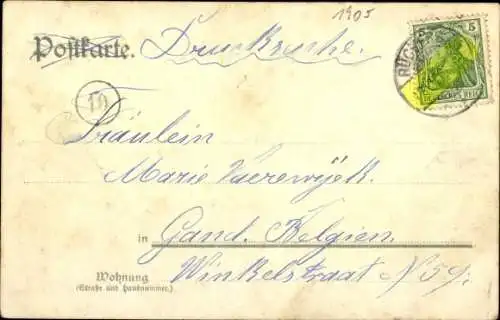 1905
Postkarte. Drucksache.
5
DEUTSCHES REICH
Fräulein
Marie Vaerewijck.
in Gand. Belgien.
Wohnung
(Straße und Hausnummer.)
Winkelstraat N 59.